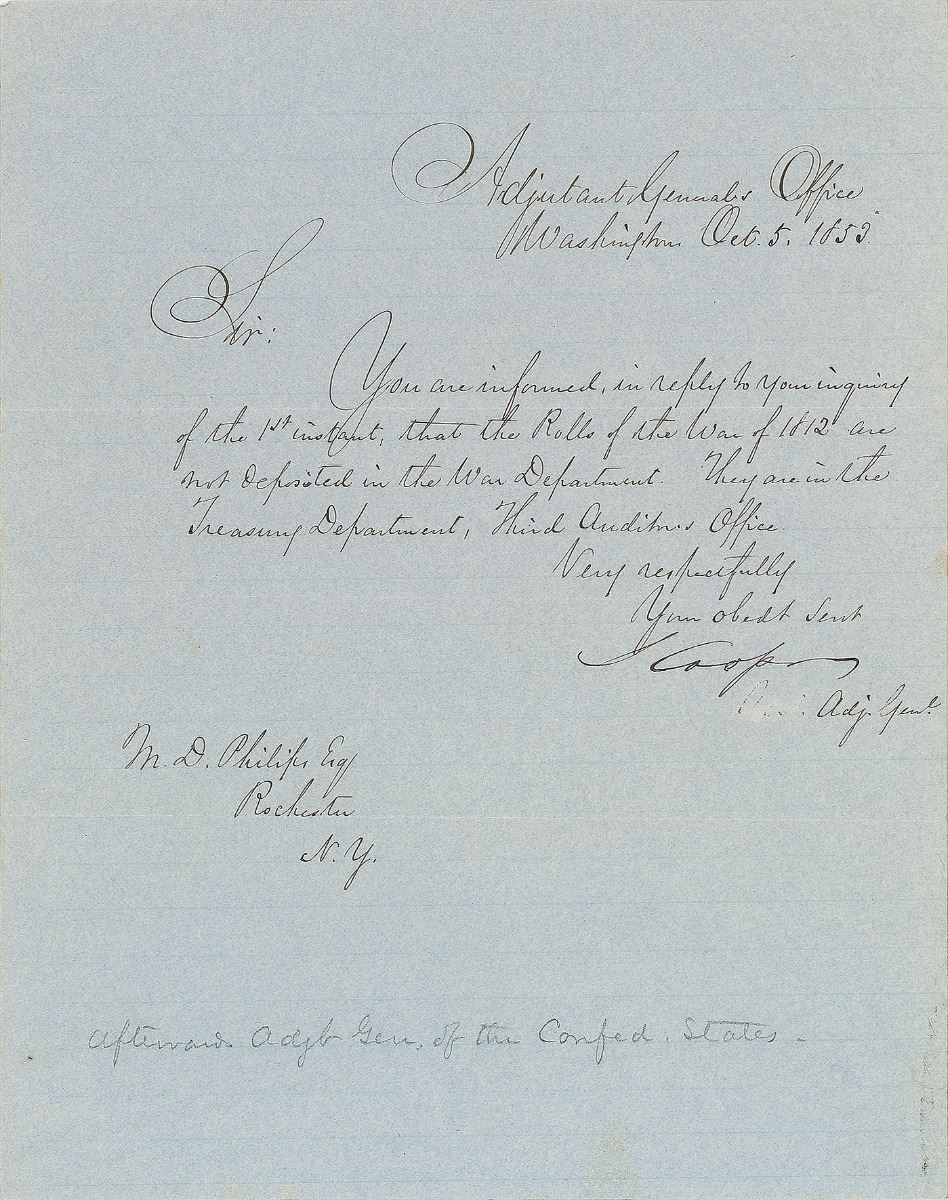 Adjutant General's Office
Washington Oct. 5. 1853.
Sir:
You are informed, in reply to your inquiry
of the 1st instant, that the Rolls of the War of 1812 are
not deposited in the War Department. They are in the
Treasury Department, Third Auditor's Office
Very respectfully
Your obedt Servt
S Cooper
Adj. Genl.
M. D. Philips Esq
Rochester
N. Y.
Afterwards Adjt Gen. of the Confed. States.